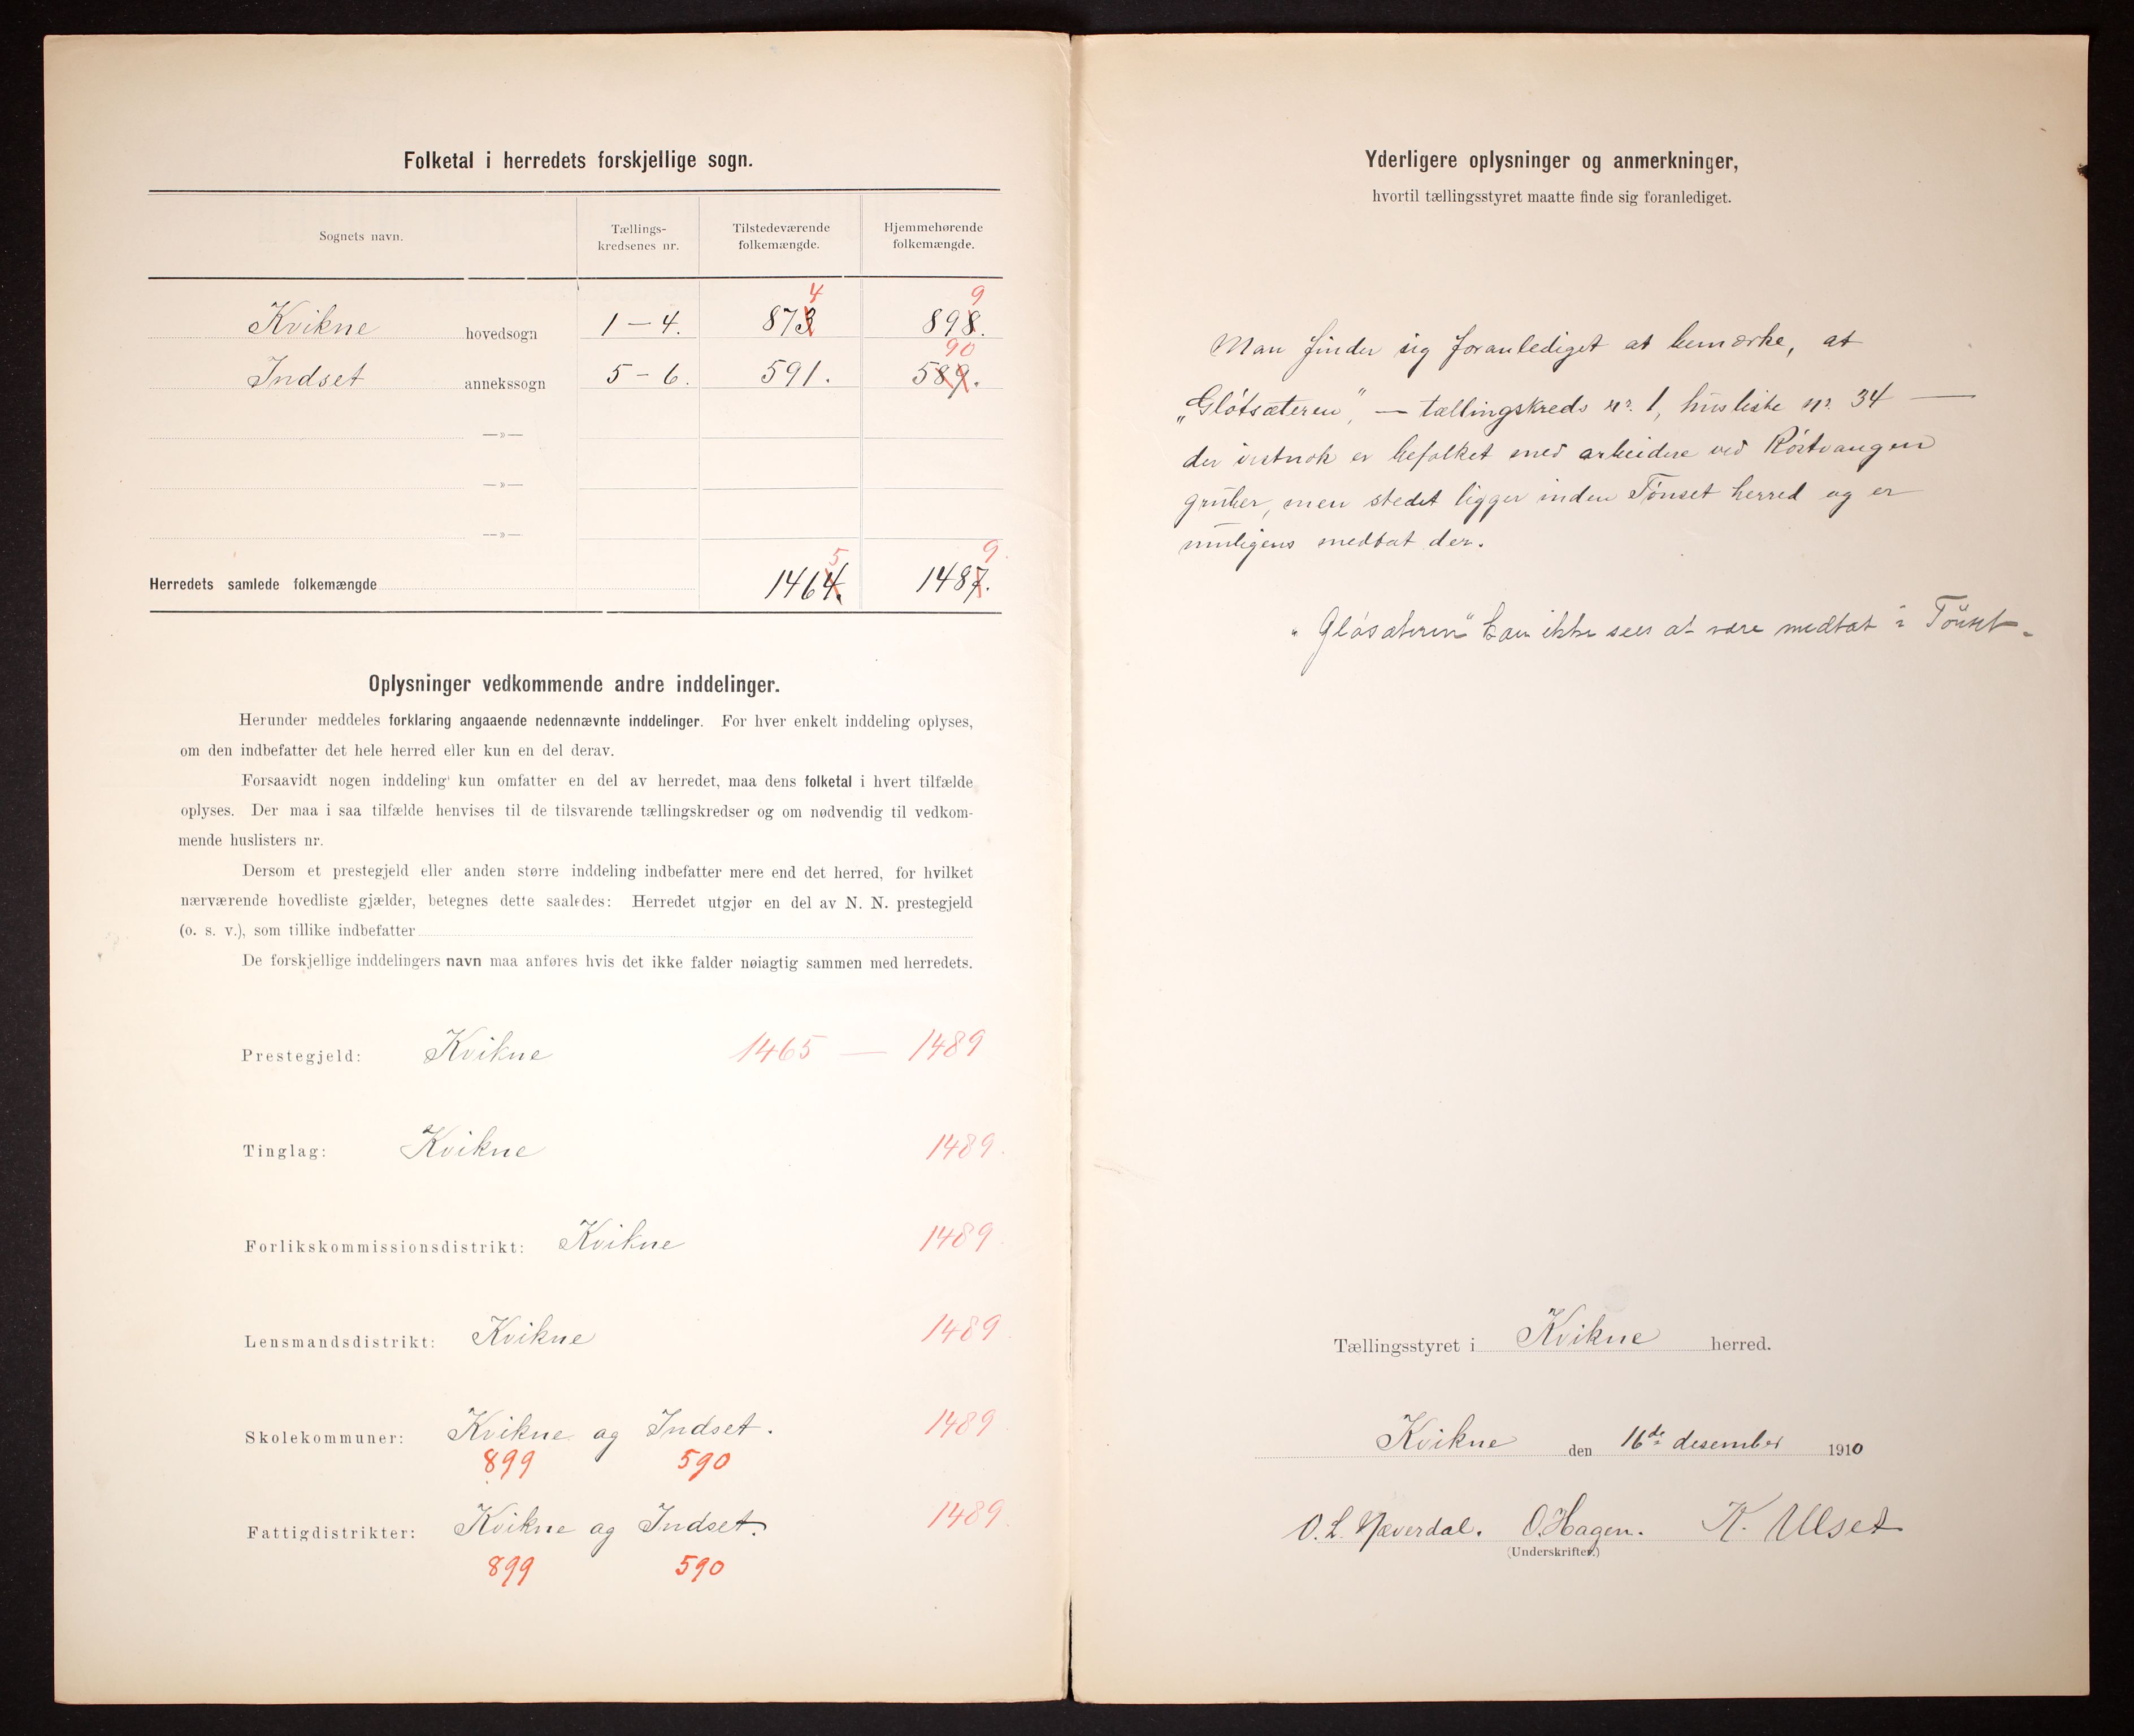 Folketal i herredets forskjellige sogn.
Sognets navn. Tællings-kredsenes nr. Tilstedeværende folkemængde. Hjemmehørende folkemængde.
4 9
Kvikne hovedsogn 1 – 4. 873 898.
90
Indset annekssogn 5 – 6. 591. 589.
—»—
—»—
—»—
5 9.
Herredets samlede folkemængde 1464. 1487.
Oplysninger vedkommende andre inddelinger.
Herunder meddeles forklaring angaaende nedennævnte inddelinger. For hver enkelt inddeling oplyses,
om den indbefatter det hele herred eller kun en del derav.
Forsaavidt nogen inddeling kun omfatter en del av herredet, maa dens folketal i hvert tilfælde
oplyses. Der maa i saa tilfælde henvises til de tilsvarende tællingskredser og om nødvendig til vedkom-
mende huslisters nr.
Dersom et prestegjeld eller anden større inddeling indbefatter mere end det herred, for hvilket
nærværende hovedliste gjælder, betegnes dette saaledes: Herredet utgjør en del av N. N. prestegjeld
(o. s. v.), som tillike indbefatter
De forskjellige inddelingers navn maa anføres hvis det ikke falder nøiagtig sammen med herredets.
Prestegjeld: Kvikne 1465 — 1489
Tinglag: Kvikne 1489.
Forlikskommissionsdistrikt: Kvikne 1489.
Lensmandsdistrikt: Kvikne 1489.
Skolekommuner: Kvikne og Indset. 1489
899 590
Fattigdistrikter: Kvikne og Indset. 1489.
899 590
Yderligere oplysninger og anmerkninger,
hvortil tællingsstyret maatte finde sig foranlediget.
Man finder sig foranlediget at bemærke, at
„Glötsæteren", — tællingskreds nr. 1, husliste nr. 34 —
der vistnok er befolket med arbeidere ved Röstvangen
gruber, men stedet ligger inden Tönset herred og er
muligens medtat der.
„Glösæteren" kan ikke sees at være medtat i Tönset.
Tællingsstyret i Kvikne herred.
Kvikne den 16de desember 1910
O. L. Næverdal. O. Hagen. K. Ulset
(Underskrifter.)